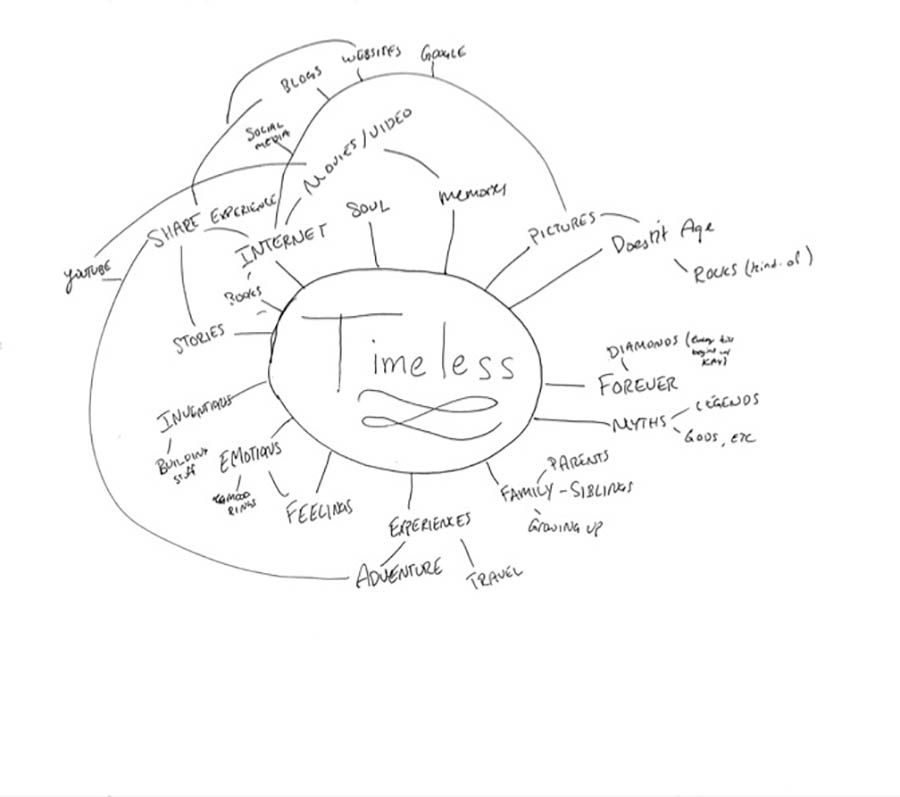 WEBSITES
GOOGLE
BLOGS
SOCIAL
MEDIA
MOVIES/VIDEO
SHARE EXPERIENCE
INTERNET
SOUL
MEMORY
PICTURES
Doesn't Age
ROCKS (kind of)
YOUTUBE
BOOKS
STORIES
Timeless
DIAMONDS (every kiss
begins w/
KAY)
FOREVER
INVENTIONS
BUILDING
STUFF
MYTHS
LEGENDS
GODS, ETC
EMOTIONS
MOOD
RINGS
FEELINGS
EXPERIENCES
ADVENTURE
TRAVEL
PARENTS
FAMILY - SIBLINGS
GROWING UP